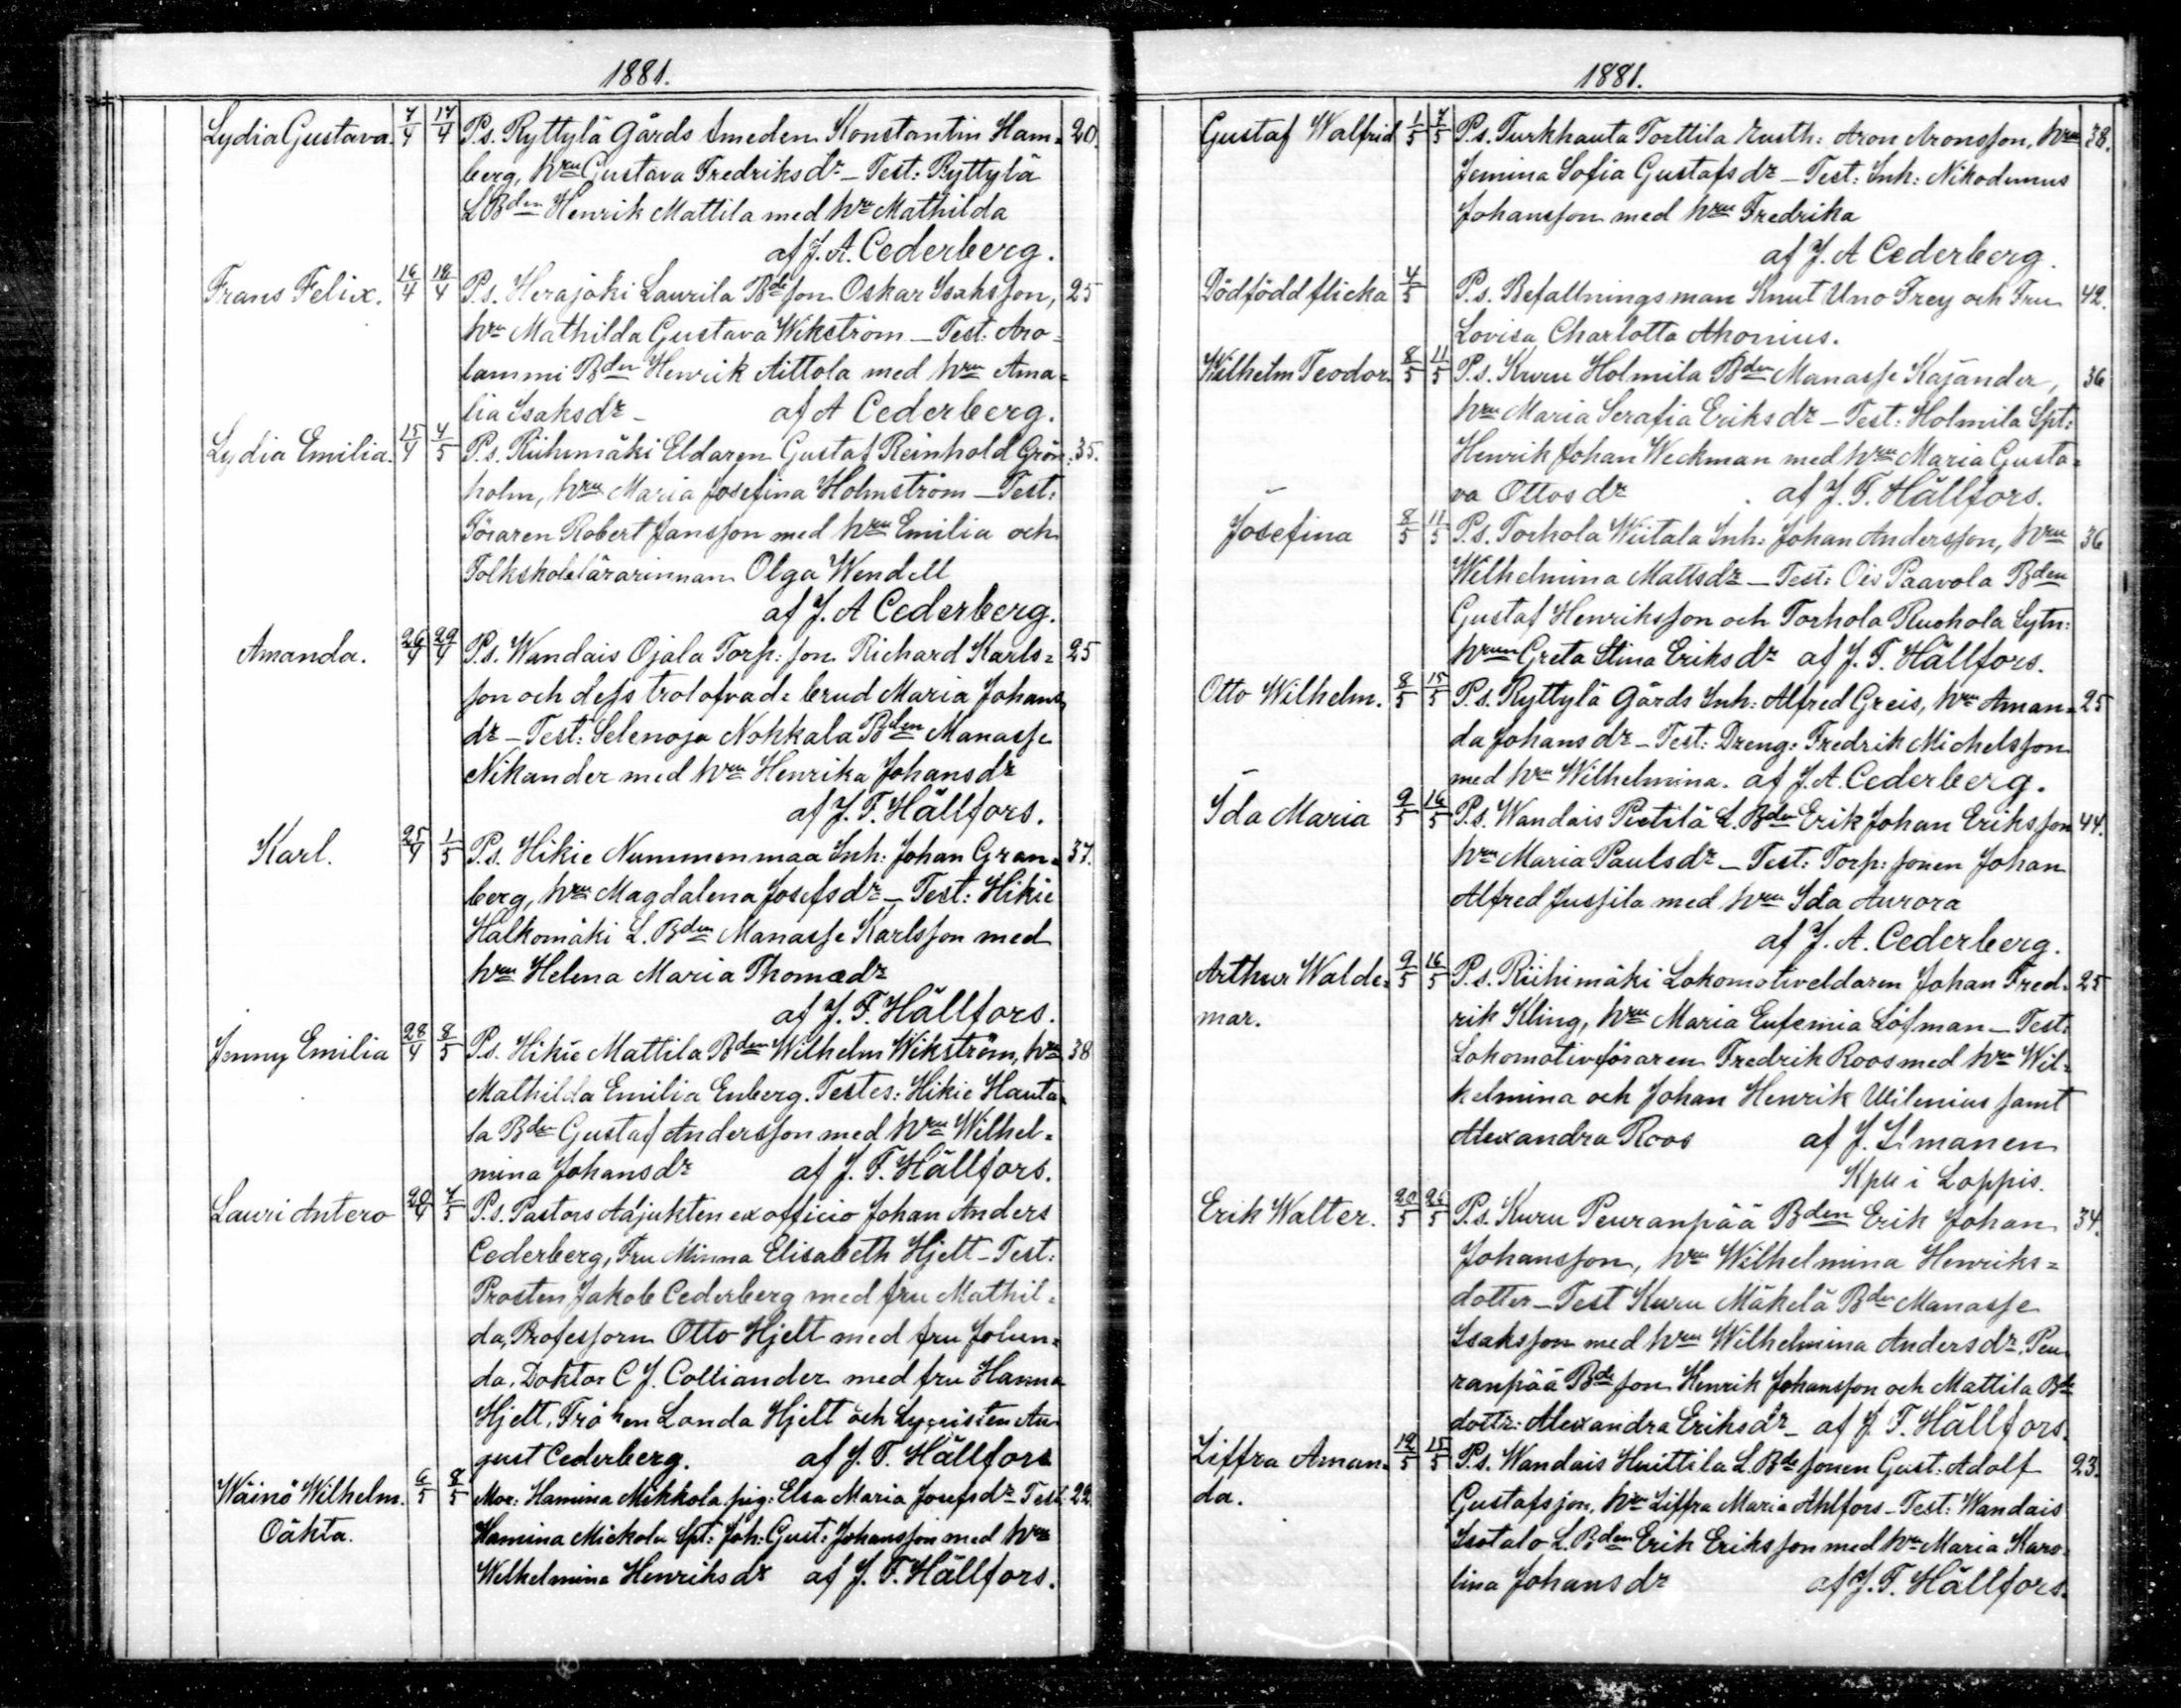 1881.
Lydia Gustava. 7/4 17/4 P.s. Ryttylä Gårds smeden Konstantin Ham= 20.
berg, hru Gustava Fredriksdr – Test: Ryttylä
L. Bden Henrik Mattila med hru Mathilda
af J. A. Cederberg.
Frans Felix. 16/4 18/4 P.s. Herajoki Laurila Bde son Oskar Isaksson, 25
hru Mathilda Gustava Wikström – Test: Aro=
lammi Bden Henrik Aittola med hru Ama=
lia Isaksdr – af A Cederberg.
Lydia Emilia. 15/4 4/5 P.s. Riihimäki Eldaren Gustaf Reinhold Grön= 35.
holm, hru Maria Josefina Holmström – Test:
Föraren Robert Jansson med hru Emilia och
Folkskolelärarinnan Olga Wendell
af J. A Cederberg.
Amanda. 26/4 29/4 P.s. Wandais Ojala Torp: son Richard Karls= 25
son och dess trolofvade brud Maria Johans
dr – Test: Selenoja Nokkala Bden Manasse
Nikander med hru Henrika Johansdr
af J. F. Hällfors.
Karl. 25/4 1/5 P.s. Hikie Nummenmaa Inh: Johan Gran= 37.
berg, hru Magdalena Josefsdr – Test: Hikie
Halkomäki L. Bden Manasse Karlsson med
hru Helena Maria Thomædr
af J. F. Hällfors.
Jenny Emilia 28/4 8/5 P.s. Hikie Mattila Bden Wilhelm Wikström, hru 38
Mathilda Emilia Enberg. Testes: Hikie Hauta=
la Bden Gustaf Andersson med hru Wilhel=
mina Johansdr af J. F. Hällfors.
Lauri Antero 20/4 7/5 P.s. Pastors Adjukten ex officio Johan Anders
Cederberg, Fru Minna Elisabeth Hjelt – Test:
Prosten Jakob Cederberg med fru Mathil=
da, Professorn Otto Hjelt med fru Jolan=
da, Doktor C J. Colliander med fru Hanna
Hjelt, Fröken Landa Hjelt och Lyceisten Au
gust Cederberg. af J. F. Hällfors
Wäinö Wilhelm. 6/5 8/5 Mor: Hamina Mikkola pig: Elsa Maria Josefsdr Test: 22
Oäkta. Hamina Mickola Spt: Joh: Gust: Johansson med hru
Wilhelmina Henriksdr af J. F. Hällfors.
1881.
Gustaf Walfrid 1/5 7/5 P.s. Turkhauta Torttila Rusth: Aron Aronsson, hru 38.
Jemina Sofia Gustafsdr – Test: Inh: Nikodemus
Johansson med hru Fredrika
af J. A Cederberg.
Dödfödd flicka 4/5 P.s. Befallningsman Knut Uno Frey och Fru 42.
Lovisa Charlotta Ahonius.
Wilhelm Teodor. 8/5 11/5 P.s. Kuru Holmila Bden Manasse Kajander, 36
hru Maria Serafia Eriksdr – Test: Holmila Spt:
Henrik Johan Weckman med hru Maria Gusta=
va Ottosdr af J. F. Hällfors.
Josefina 8/5 11/5 P.s. Torhola Wiitala Inh: Johan Andersson, hru 36
Wilhelmina Mattsdr – Test: Ois Paavola Bden
Gustaf Henriksson och Torhola Ruohola Sytn:
hrun Greta Stina Eriksdr af J. F. Hällfors.
Otto Wilhelm. 8/5 15/5 P.s. Ryttylä Gårds Inh: Alfred Greis, hru Aman= 25
da Johansdr – Test: Dreng: Fredrik Michelsson
med hru Wilhelmina. af J. A. Cederberg.
Ida Maria 9/5 16/5 P.s. Wandais Pietilä L. Bden Erik Johan Eriksson 44.
hru Maria Paulsdr – Test: Torp: sonen Johan
Alfred Jussila med hru Ida Aurora
af J. A. Cederberg.
Arthur Walde= 9/5 16/5 P.s. Riihimäki Lokomotiveldaren Johan Fred= 25
mar. rik Kling, hru Maria Eufemia Löfman – Test:
Lokomotivföraren Fredrik Roos med hru Wil=
helmina och Johan Henrik Wilenius samt
Alexandra Roos af J. Ilmanen
Kpn i Loppis.
Erik Walter. 20/5 26/5 P.s. Kuru Peuranpää Bden Erik Johan 34.
Johansson, hru Wilhelmina Henriks=
dotter – Test Kuru Mäkelä Bden Manasse
Isaksson med hru Wilhelmina Andersdr, Peu
ranpää Bde son Henrik Johansson och Mattila Bde
dottr: Alexandra Eriksdr – af J. F. Hällfors.
Ziffra Aman= 12/5 15/5 P.s. Wandais Huittila L. Bde sonen Gust: Adolf 23.
da. Gustafsson, hru Ziffra Maria Ahlfors – Test: Wandais
Isotalo L. Bden Erik Eriksson med hru Maria Karo=
lina Johansdr af J. F. Hällfors.